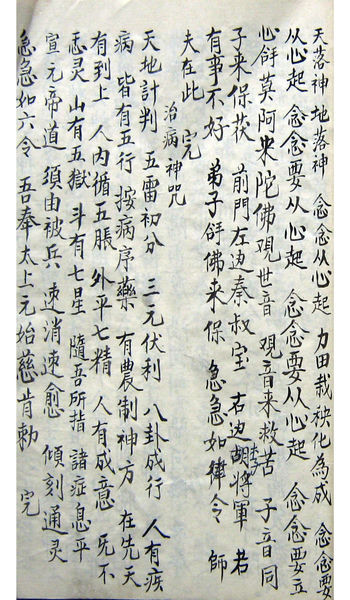 天落神 地落神 念念从心起 力田栽秧化為成 念念要
从心起 念念要从心起 念念要从心起 念念要五
心 莫阿来陀佛 覌世音 覌音来救苦 子音同
子来保茯 前門左边秦叔宝 右边胡将軍 若
有事不好 弟子 佛来保 急急如律令 師
夫在此 完
治病神咒
天地計判 五雷初分 三元伏利 八卦成行 人有疾
病 皆有五行 按病序藥 有農制神方 在先天
有到上 人内循五脹 外平七精 人有成意 旡不
忢灵 山有五嶽 斗有七星 隨吾所指 諸症息平
宣元帝道 須由被兵 速消速愈 傾刻通灵
急急如六令 吾奉太上元始慈肯勅 完